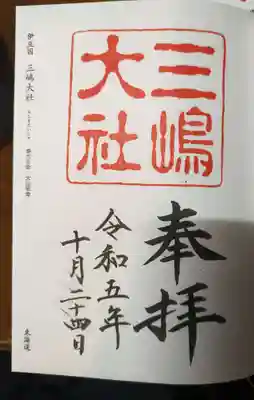 三嶋
大社
奉拝
令和五年
十月二十四日
伊豆国 三嶋大社
東海道